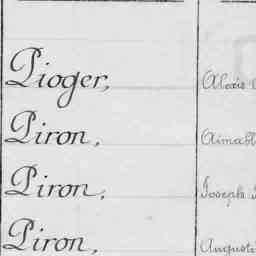 Pioger, Alexis
Piron, Aimabl
Piron, Joseph
Piron, Augusti